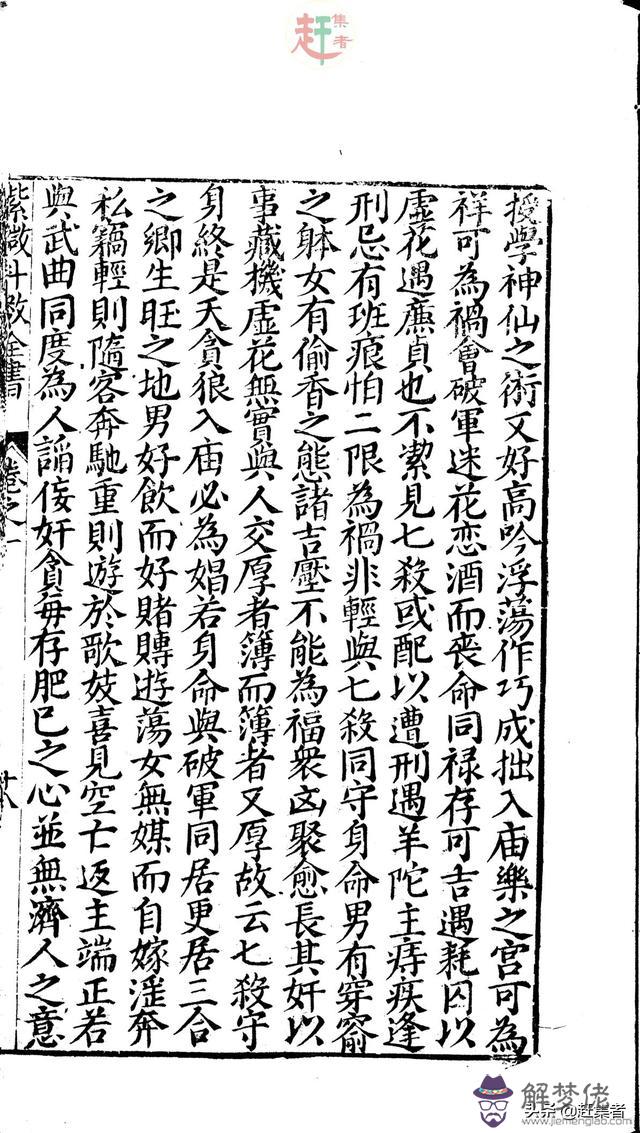 集者
赶
授學神仙之術又好高吟浮蕩作巧成拙入庙樂之宫可為
祥可為禍會破軍迷花恋酒而丧命同禄存可吉遇耗囚以
虚花遇廉貞也不潔見七殺或配以遭刑遇羊陀主痔疾逢
刑忌有班痕怕二限為禍非輕與七殺同守身命男有穿窬
之躰女有偷香之態諸吉壓不能為福衆凶聚愈長其奸以
事藏機虚花無實與人交厚者簿而簿者又厚故云七殺守
身終是夭貪狼入庙必為娼若身命與破軍同居更居三合
之鄉生旺之地男好飲而好賭賻遊蕩女無媒而自嫁滛奔
私竊輕則隨客奔馳重則遊於歌妓喜見空亡返主端正若
與武曲同度為人謟佞奸貪每存肥已之心並無濟人之意
紫微斗数全書 卷之一 十八
解梦佬
www.jiemenglao.com
头条@赶集者